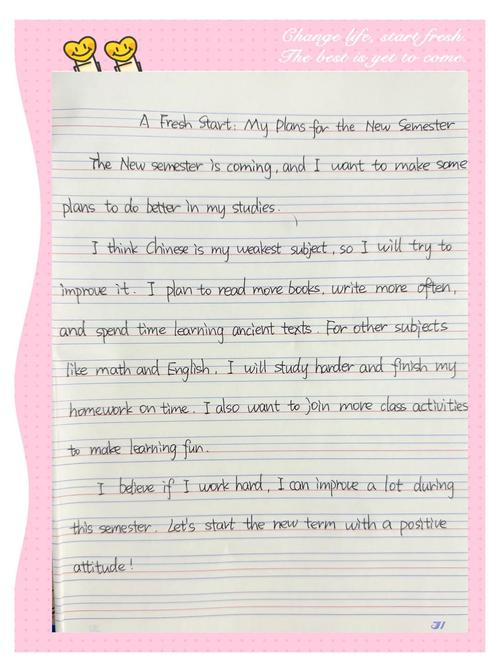 Change life, start fresh.
The best is yet to come.
A Fresh Start: My Plans for the New Semester
The New semester is coming, and I want to make some
plans to do better in my studies.
I think Chinese is my weakest subject, so I will try to
improve it. I plan to read more books, write more often,
and spend time learning ancient texts. For other subjects
like math and English, I will study harder and finish my
homework on time. I also want to join more class activities
to make learning fun.
I believe if I work hard, I can improve a lot during
this semester. Let's start the new term with a positive
attitude!